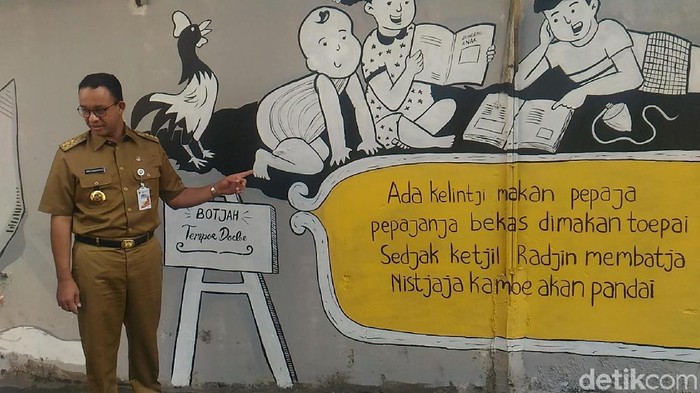 DONGENG ANAK
BOTJAH
Tempoe Doeloe
Ada kelintji makan pepaja
pepajanja bekas dimakan toepai
Sedjak ketjil Radjin membatja
Nistjaja kamoe akan pandai
detikcom